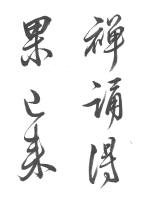 禅诵得
果已来